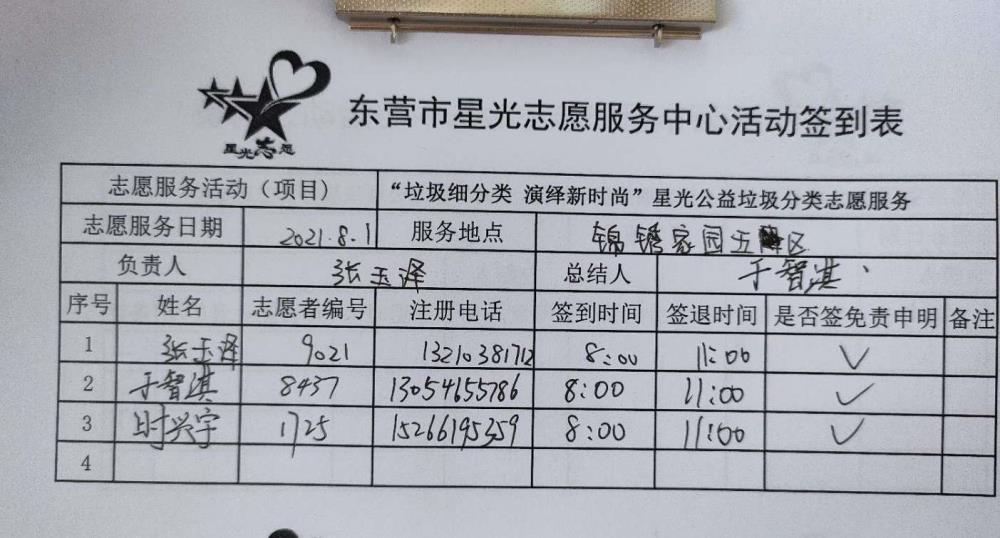 星光志愿
东营市星光志愿服务中心活动签到表
志愿服务活动（项目） “垃圾细分类 演绎新时尚”星光公益垃圾分类志愿服务
志愿服务日期 2021.8.1 服务地点 锦绣家园五区
负责人 张玉泽 总结人 于智淇
序号 姓名 志愿者编号 注册电话 签到时间 签退时间 是否签免责申明 备注
1 张玉泽 9021 13210381712 8:00 11:00 ✓
2 于智淇 8437 13054655786 8:00 11:00 ✓
3 时兴宇 1725 15266195359 8:00 11:00 ✓
4